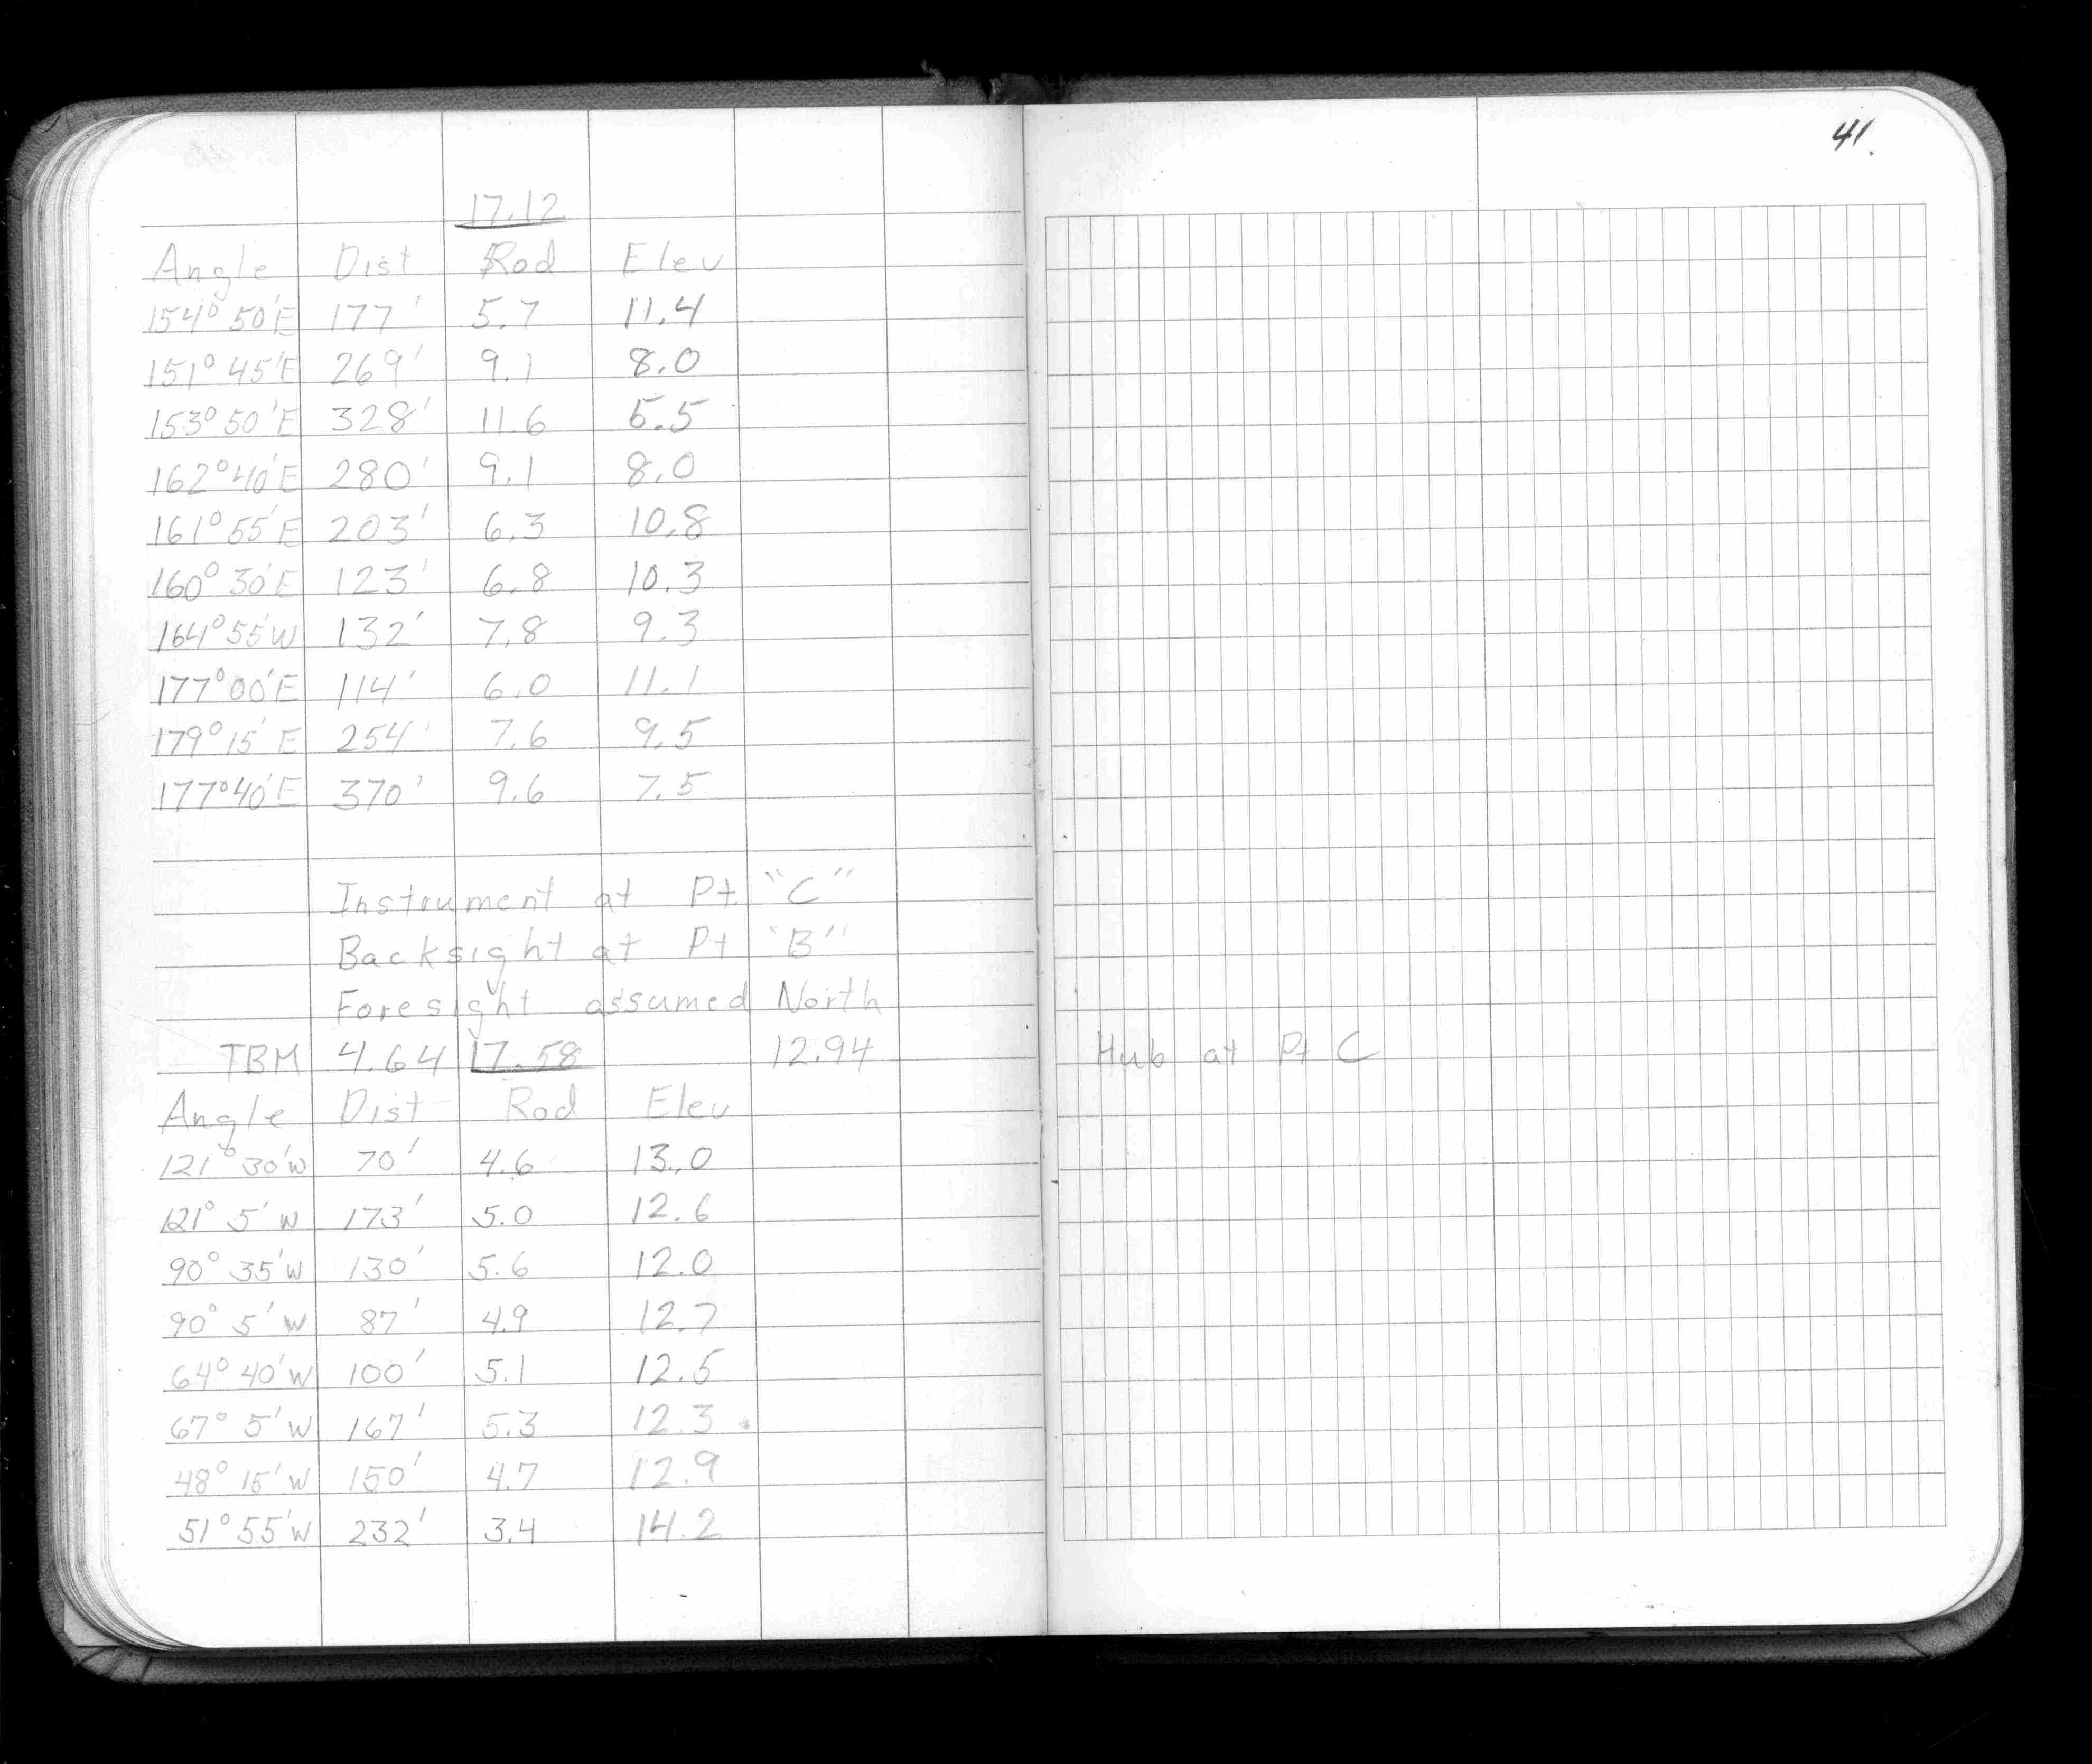 41.
17.12
Angle Dist Rod Elev
154° 50'E 177' 5.7 11.4
151° 45'E 269' 9.1 8.0
153° 50'E 328' 11.6 5.5
162° 40'E 280' 9.1 8.0
161° 55'E 203' 6.3 10.8
160° 30'E 123' 6.8 10.3
164° 55'W 132' 7.8 9.3
177° 00'E 114' 6.0 11.1
179° 15'E 254' 7.6 9.5
177° 40'E 370' 9.6 7.5
Instrument at Pt. "C"
Backsight at Pt "B"
Foresight assumed North
TBM 4.64 17.58 12.94 Hub at Pt C
Angle Dist Rod Elev
121° 30'W 70' 4.6 13.0
121° 5' W 173' 5.0 12.6
90° 35'W 130' 5.6 12.0
90° 5' W 87' 4.9 12.7
64° 40'W 100' 5.1 12.5
67° 5' W 167' 5.3 12.3
48° 15' W 150' 4.7 12.9
51° 55'W 232' 3.4 14.2